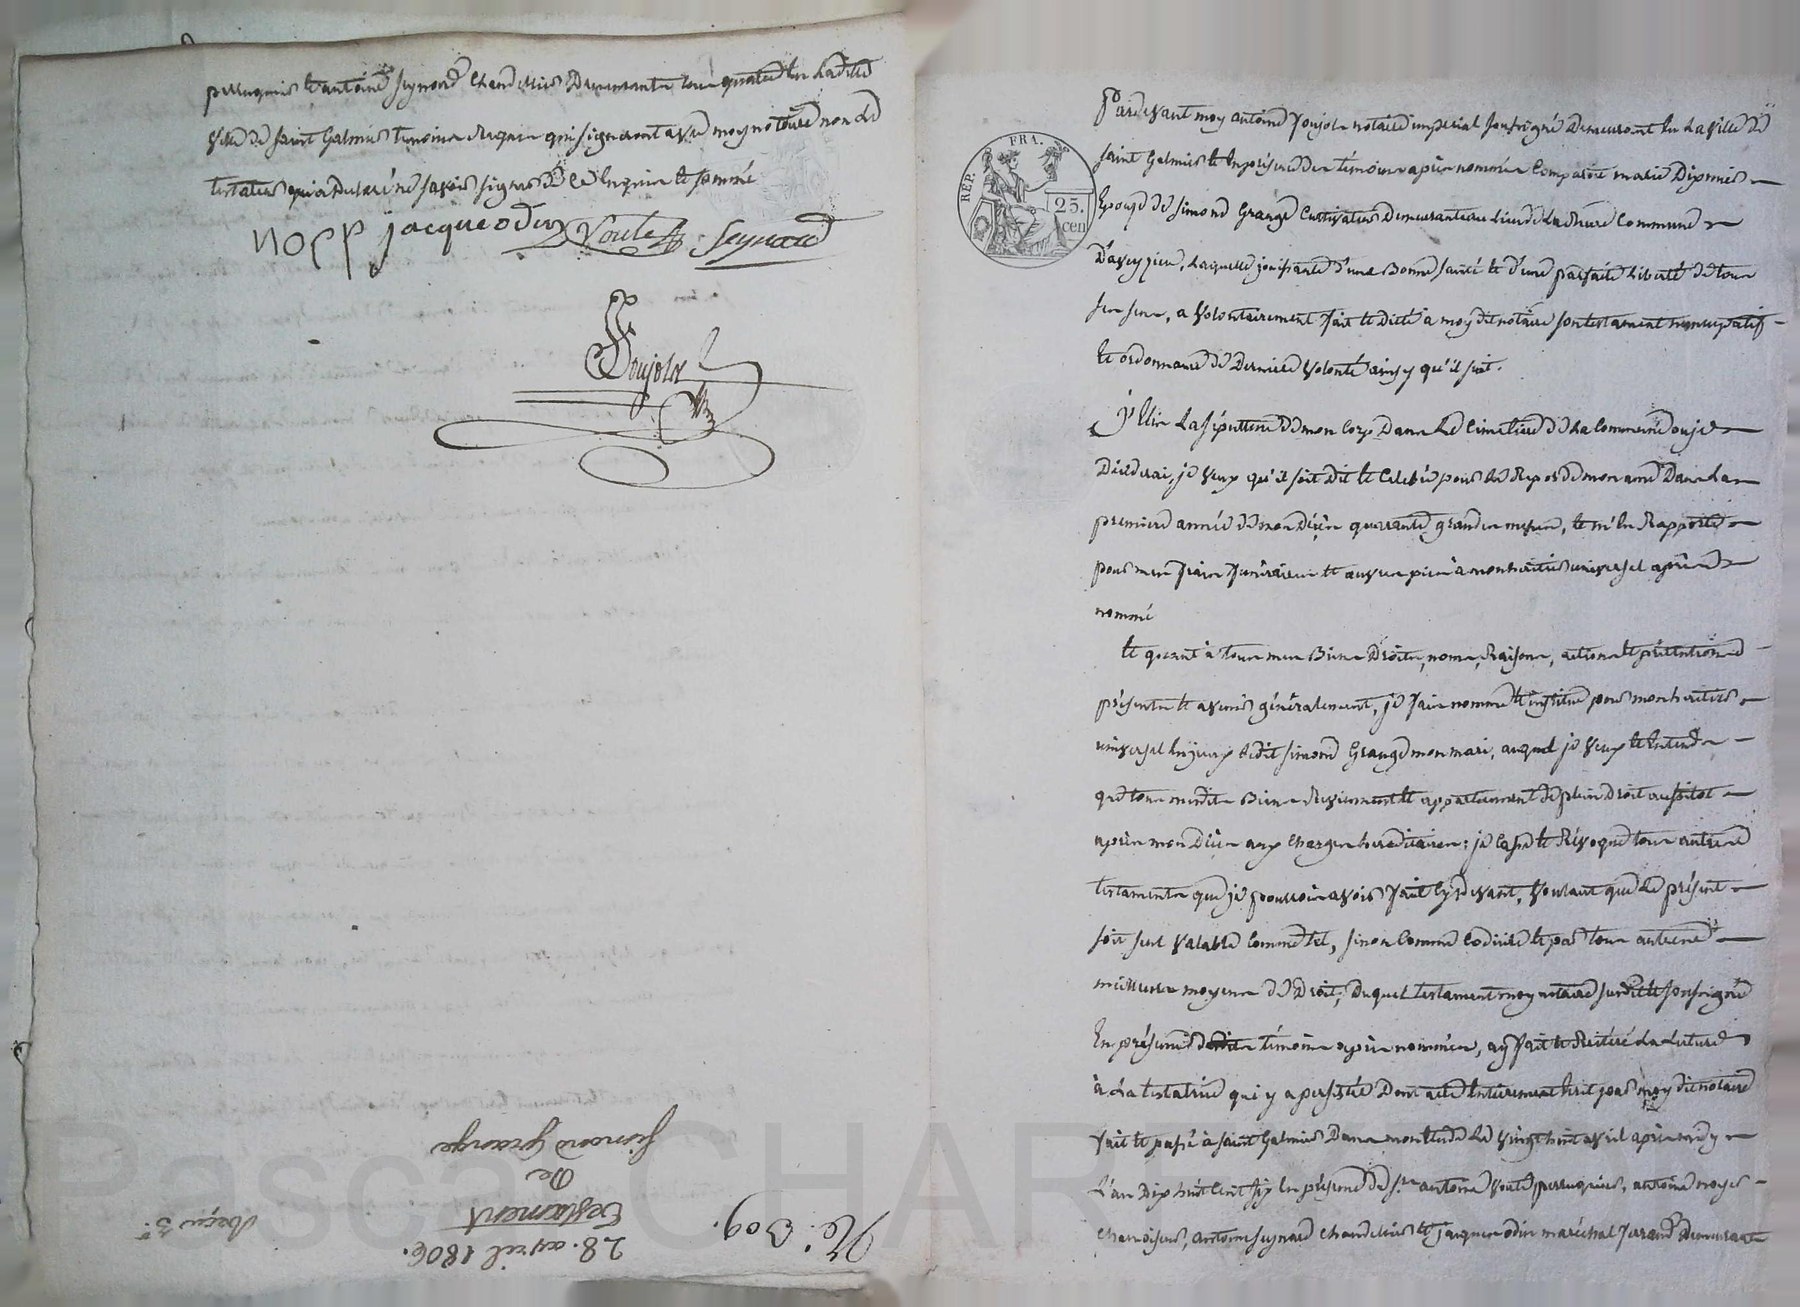 Pardevant moy antoine Poujola notaire imperial soussigné Demeurant En La Ville de
saint Galmier Et En presence des témoins apres nommés Comparoit marie
Epouse de simond Grange Cultivateur Demeurante au Lieu de La Commune
D'aveyzieu, Laquelle jouissante d'une Bonne santé Et d'une parfaite Liberté de tous
ses sens, a Volontairement fait Et Dicté a moy dit notaire son testament nuncupatif
Et ordonnance de Derniere Volonté ainsy qu'il suit.
j'Elis La sépulture de mon Corp Dans Le Cimetiere de La Commune ou je
Décéderai, je Veux qu'il soit Dit Et Celebré pour Le Repos de mon ame Dans La
premiere année de mon Décès quarante grandes messes, Et m'En Rapporte
pour mes frais funéraires Et œuvres pies à mon héritier universel après
nommé
Et quant à tous mes Biens Droits, noms, Raisons, actions Et prétentions
présents Et avenir généralement, je fais nomme Et institue pour mon heritier
universel ledit simond Grange mon mari, auquel je Veux Et Entends
que tous mesdits Biens Reviennent Et appartiennent de plein Droit aussitot
après mon Décès aux Charges héréditaires; je Casse Et Révoque tous autres
testaments que je pourrois avoir fait Cy devant, Voulant que Le présent
soit seul Valable Comme tel, sinon Comme Codicile Et par tous autres
meilleurs moyens de Droit; Duquel testament moy notaire susdit Et soussigné
En présence desdits témoins après nommés, ay fait Et Réitéré La Lecture
à La testatrice qui y a persisté Dont acte Entierement Ecrit par moy dit notaire
fait Et passé à saint Galmier Dans mon Etude Le Vingt huit avril après midy
L'an Dix huit Cent six En présence de sr. antoine Voute perruquier, antoine noyer
Chamoiseur, antoine seynard Chandellier Et jacques odin maréchal ferrand Demeurants
perruquier Et antoine seynard Chandellier Demeurants tous quatre En Ladite
Ville de saint Galmier témoins Requis qui signeront avec moy notaire non La
testatrice qui a Declaré ne savoir signer De Ce Enquise Et sommée
jacque odin Voute Seynard
Poujola
28. avril 1806.
Testament
De
Simond Grange
No. 309.
Reçu 3f.
REP. FRA.
25.
cen
Pascal CHARTRAIN